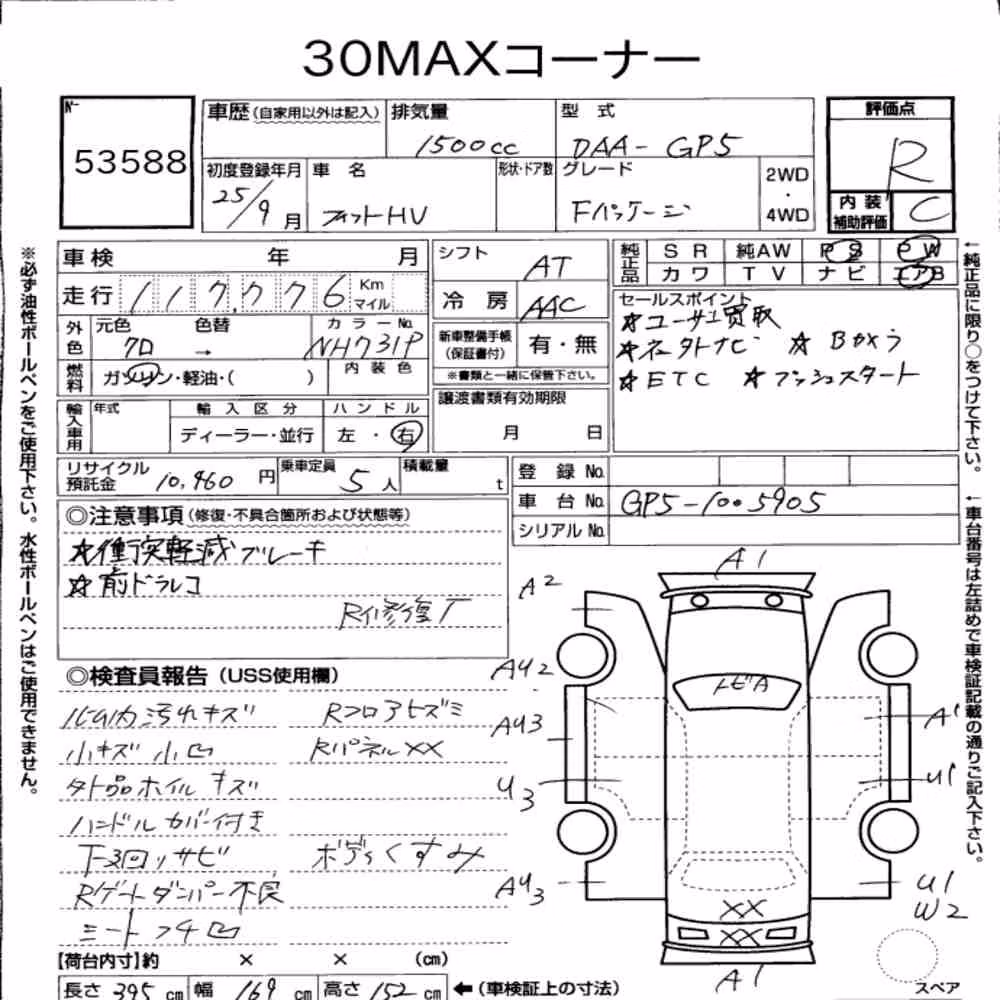 30MAXコーナー
No.
53588
車歴(自家用以外は記入)
排気量
1500cc
型 式
DAA-GP5
評価点
R
初度登録年月
25/9月
車 名
フィットHV
形状・ドア数
グレード
Fパッケージ
2WD
・
4WD
内装
補助評価
C
車検 年 月
シフト
AT
純正品
SR 純AW PS PW
カワ TV ナビ エアB
走行 117,776 Km
マイル
冷房
AAC
セールスポイント
☆ユーザー買取
☆ネクトナビ ☆Bカメラ
☆ETC ☆プッシュスタート
外色
元色 色替 カラーNo.
クロ → NH731P
新車整備手帳
(保証書付)
有・無
※書類と一緒に保管下さい。
燃料
ガソリン・軽油・( )
内装色
輸入車用
年式
輸入区分
ハンドル
ディーラー・並行
左・右
譲渡書類有効期限
月 日
リサイクル
預託金
10,460円
乗車定員
5人
積載量
t
登録No.
車台No.
GP5-1005905
シリアルNo.
◎注意事項(修復・不具合箇所および状態等)
☆衝突軽減ブレーキ
☆前ドラレコ
R修復T
◎検査員報告(USS使用欄)
内汚れキズ Rフロアヒズミ
小キズ 小凹 RパネルXX
外品ホイルキズ
ハンドルカバー付き
下回りサビ ボディくすみ
Rゲートダンパー不良
シートフチ凹
【荷台内寸】約 × × (cm)
長さ 395cm 幅 169cm 高さ 152cm ←(車検証上の寸法)
A1
A2
AU2
AU3
U3
AU3
トビA
A1
U1
U1
W2
XX
XX
A1
スペア
※必ず油性ボールペンをご使用下さい。水性ボールペンはご使用できません。
←純正品に限り○をつけて下さい。
←車台番号は左詰めで車検証記載の通りご記入下さい。